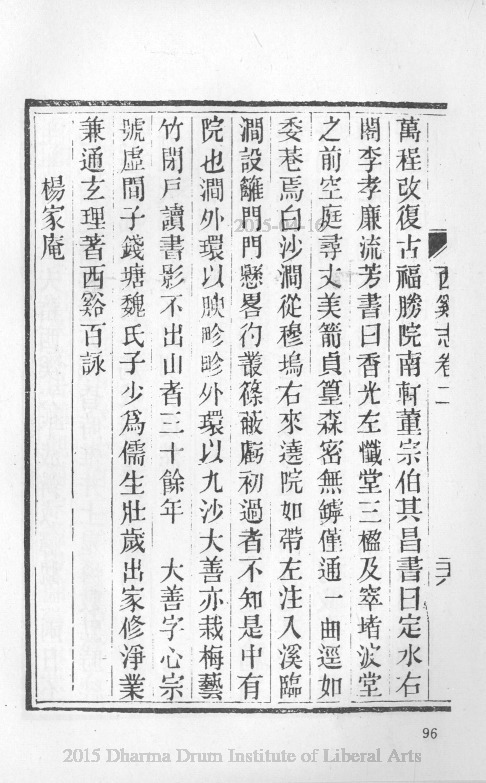 西谿志卷二
二六
萬程改復古福勝院南軒董宗伯其昌書曰定水右
閣李孝廉流芳書曰香光左懺堂三楹及窣堵波堂
之前空庭尋丈美箭貞篁森密無罅僅通一曲逕如
委巷焉白沙澗從穆塢右來遶院如帶左注入溪臨
澗設籬門門懸畧彴叢篠蔽虧初過者不知是中有
院也澗外環以腴畛畛外環以九沙大善亦栽梅藝
竹閉戸讀書影不出山者三十餘年　大善字心宗
號虛閒子錢塘魏氏子少爲儒生壯歲出家修淨業
兼通玄理著西谿百詠
楊家庵
96
2015-04-16
2015 Dharma Drum Institute of Liberal Arts